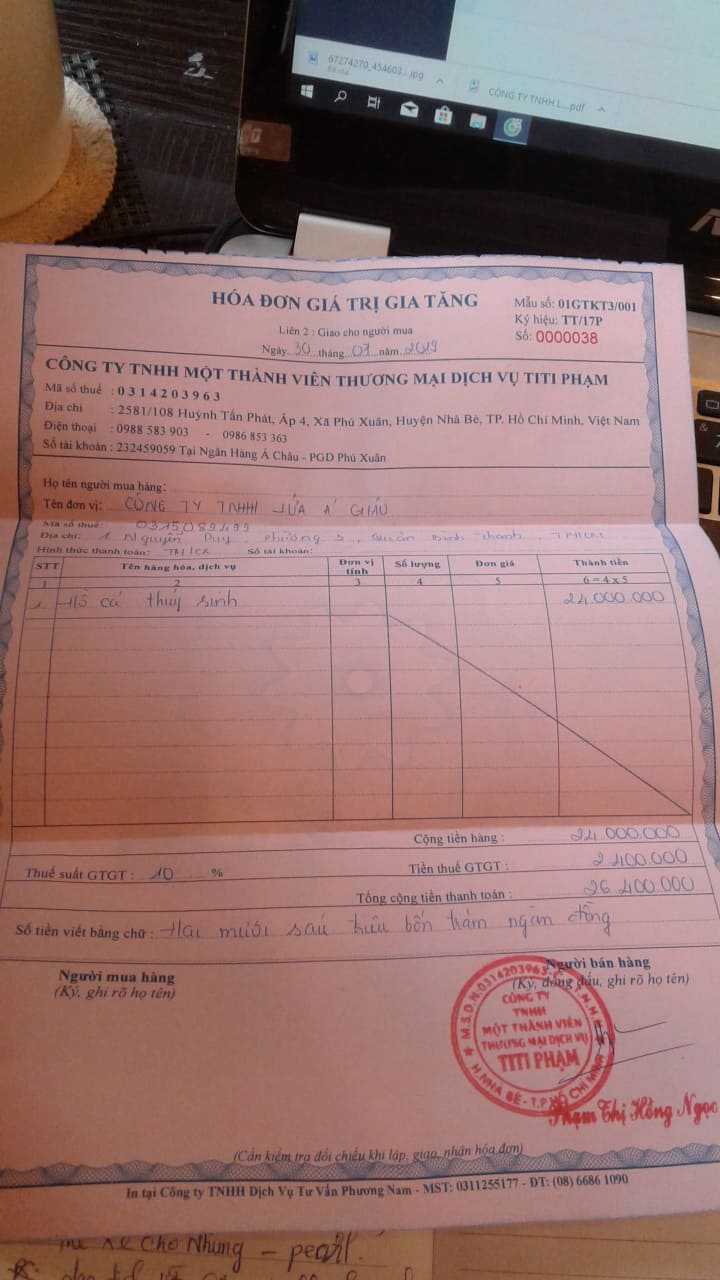 67274270_454603...jpg
CÔNG TY TNHH L....pdf
HÓA ĐƠN GIÁ TRỊ GIA TĂNG
Mẫu số: 01GTKT3/001
Liên 2 : Giao cho người mua
Ký hiệu: TT/17P
Ngày 30 tháng 07 năm 2019
Số: 0000038
CÔNG TY TNHH MỘT THÀNH VIÊN THƯƠNG MẠI DỊCH VỤ TITI PHẠM
Mã số thuế : 0314203963
Địa chỉ : 2581/108 Huỳnh Tấn Phát, Ấp 4, Xã Phú Xuân, Huyện Nhà Bè, TP. Hồ Chí Minh, Việt Nam
Điện thoại : 0988 583 903 - 0986 853 363
Số tài khoản : 232459059 Tại Ngân Hàng Á Châu - PGD Phú Xuân
Họ tên người mua hàng:
Tên đơn vị: CÔNG TY TNHH LÚA Á CHÂU
Mã số thuế: 0315089499
Địa chỉ: 1 Nguyễn Duy, Phường 3, Quận Bình Thạnh, TPHCM
Hình thức thanh toán: TM/CK Số tài khoản:
STT Tên hàng hóa, dịch vụ Đơn vị tính Số lượng Đơn giá Thành tiền
1 2 3 4 5 6 = 4 x 5
1 Hồ cá thủy sinh 24.000.000
Cộng tiền hàng : 24.000.000
Thuế suất GTGT : 10 % Tiền thuế GTGT : 2.400.000
Tổng cộng tiền thanh toán : 26.400.000
Số tiền viết bằng chữ : Hai mươi sáu triệu bốn trăm ngàn đồng
Người mua hàng
Người bán hàng
(Ký, ghi rõ họ tên)
(Ký, đóng dấu, ghi rõ họ tên)
M.S.D.N:0314203963
CÔNG TY
TNHH
MỘT THÀNH VIÊN
THƯƠNG MẠI DỊCH VỤ
TITI PHẠM
H.NHÀ BÈ - T.P HỒ CHÍ MINH
Phạm Thị Hồng Ngọc
(Cần kiểm tra đối chiếu khi lập, giao, nhận hóa đơn)
In tại Công ty TNHH Dịch Vụ Tư Vấn Phương Nam - MST: 0311255177 - ĐT: (08) 6686 1090
xe cho Nhung - pearl.